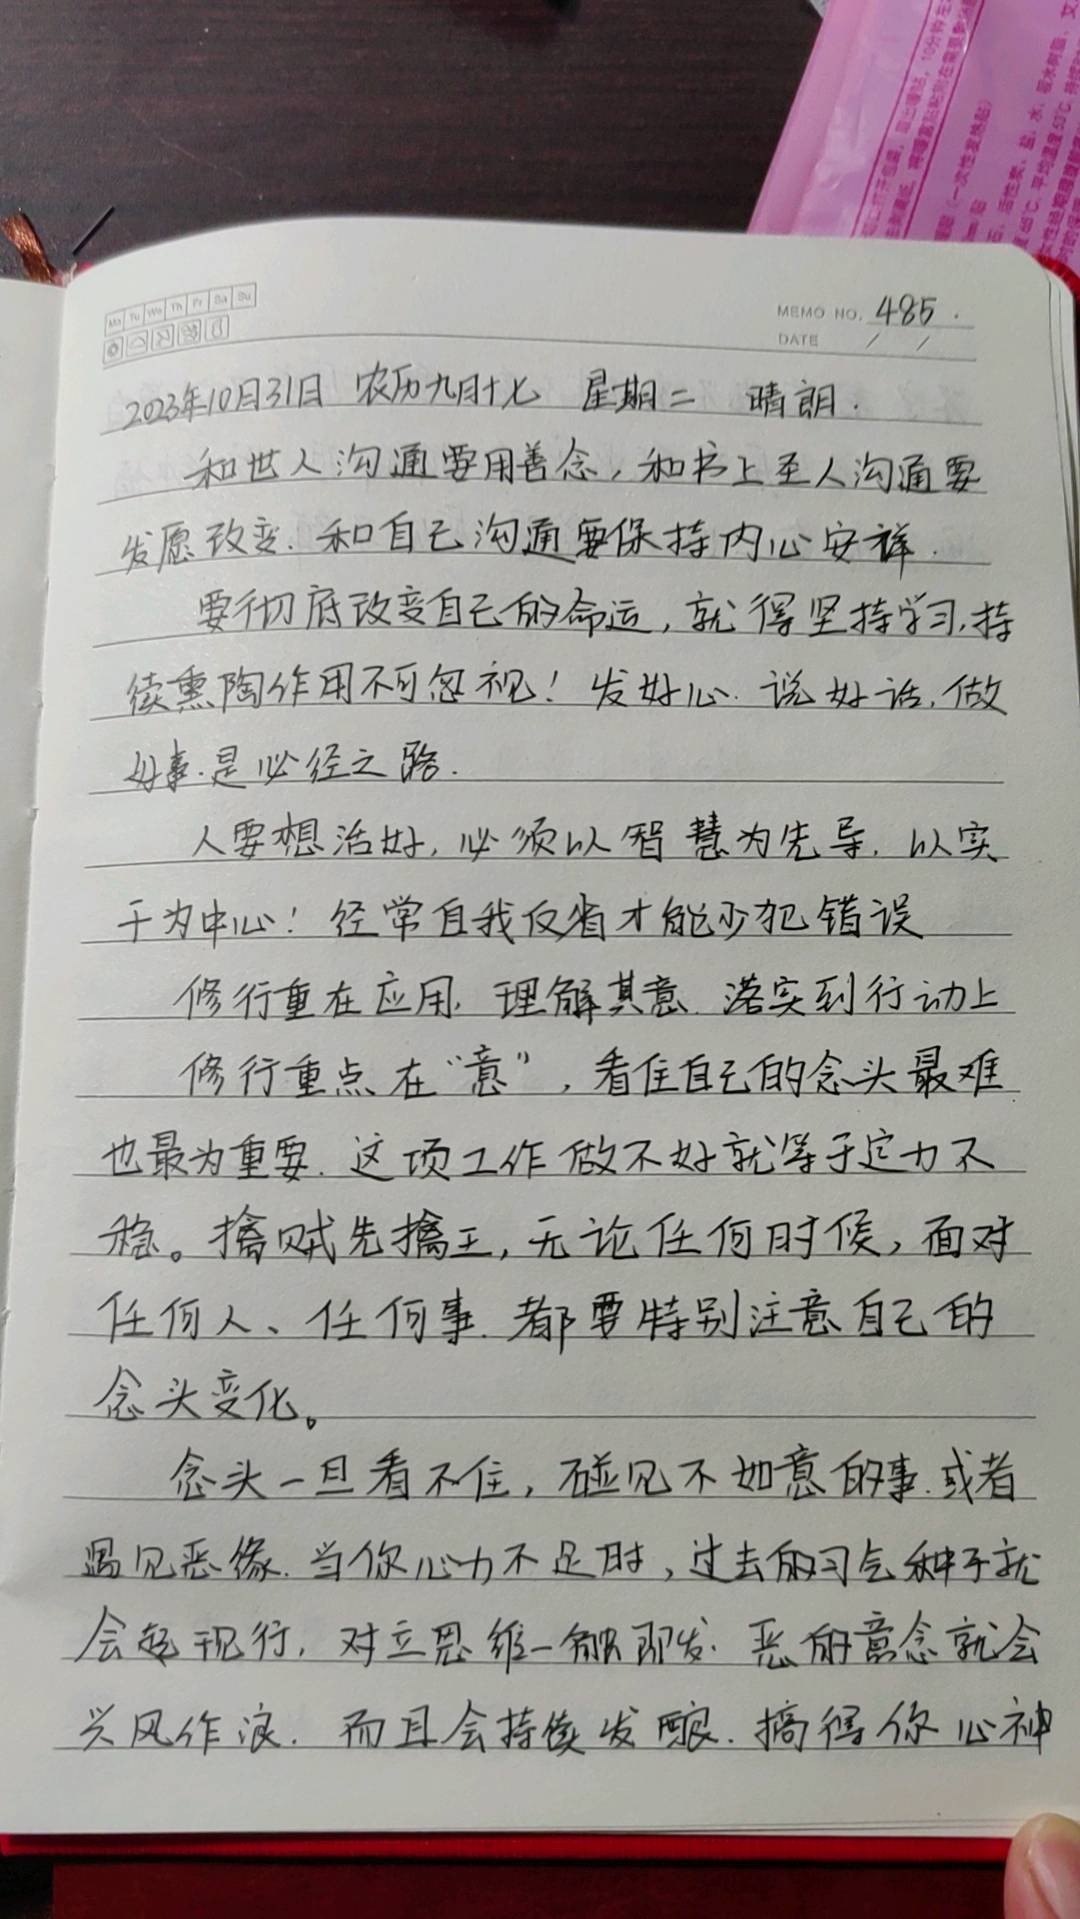 Mo Tu We Th Fr Sa Su
MEMO NO. 485.
DATE / /
2023年10月31日 农历九月十七 星期二 晴朗.
和世人沟通要用善念,和书上圣人沟通要
发愿改变.和自己沟通要保持内心安祥.
要彻底改变自己的命运,就得坚持学习,持
续熏陶作用不可忽视!发好心.说好话,做
好事.是必经之路.
人要想活好,必须以智慧为先导.以实
干为中心!经常自我反省才能少犯错误
修行重在应用.理解其意.落实到行动上
修行重点在“意”,看住自己的念头最难
也最为重要.这项工作做不好就等于定力不
稳。擒贼先擒王,无论任何时候,面对
任何人、任何事.都要特别注意自己的
念头变化。
念头一旦看不住,碰见不如意的事.或者
遇见恶缘.当你心力不足时,过去的习气种子就
会起现行,对立思维一触即发.恶的意念就会
兴风作浪.而且会持续发酿.搞得你心神